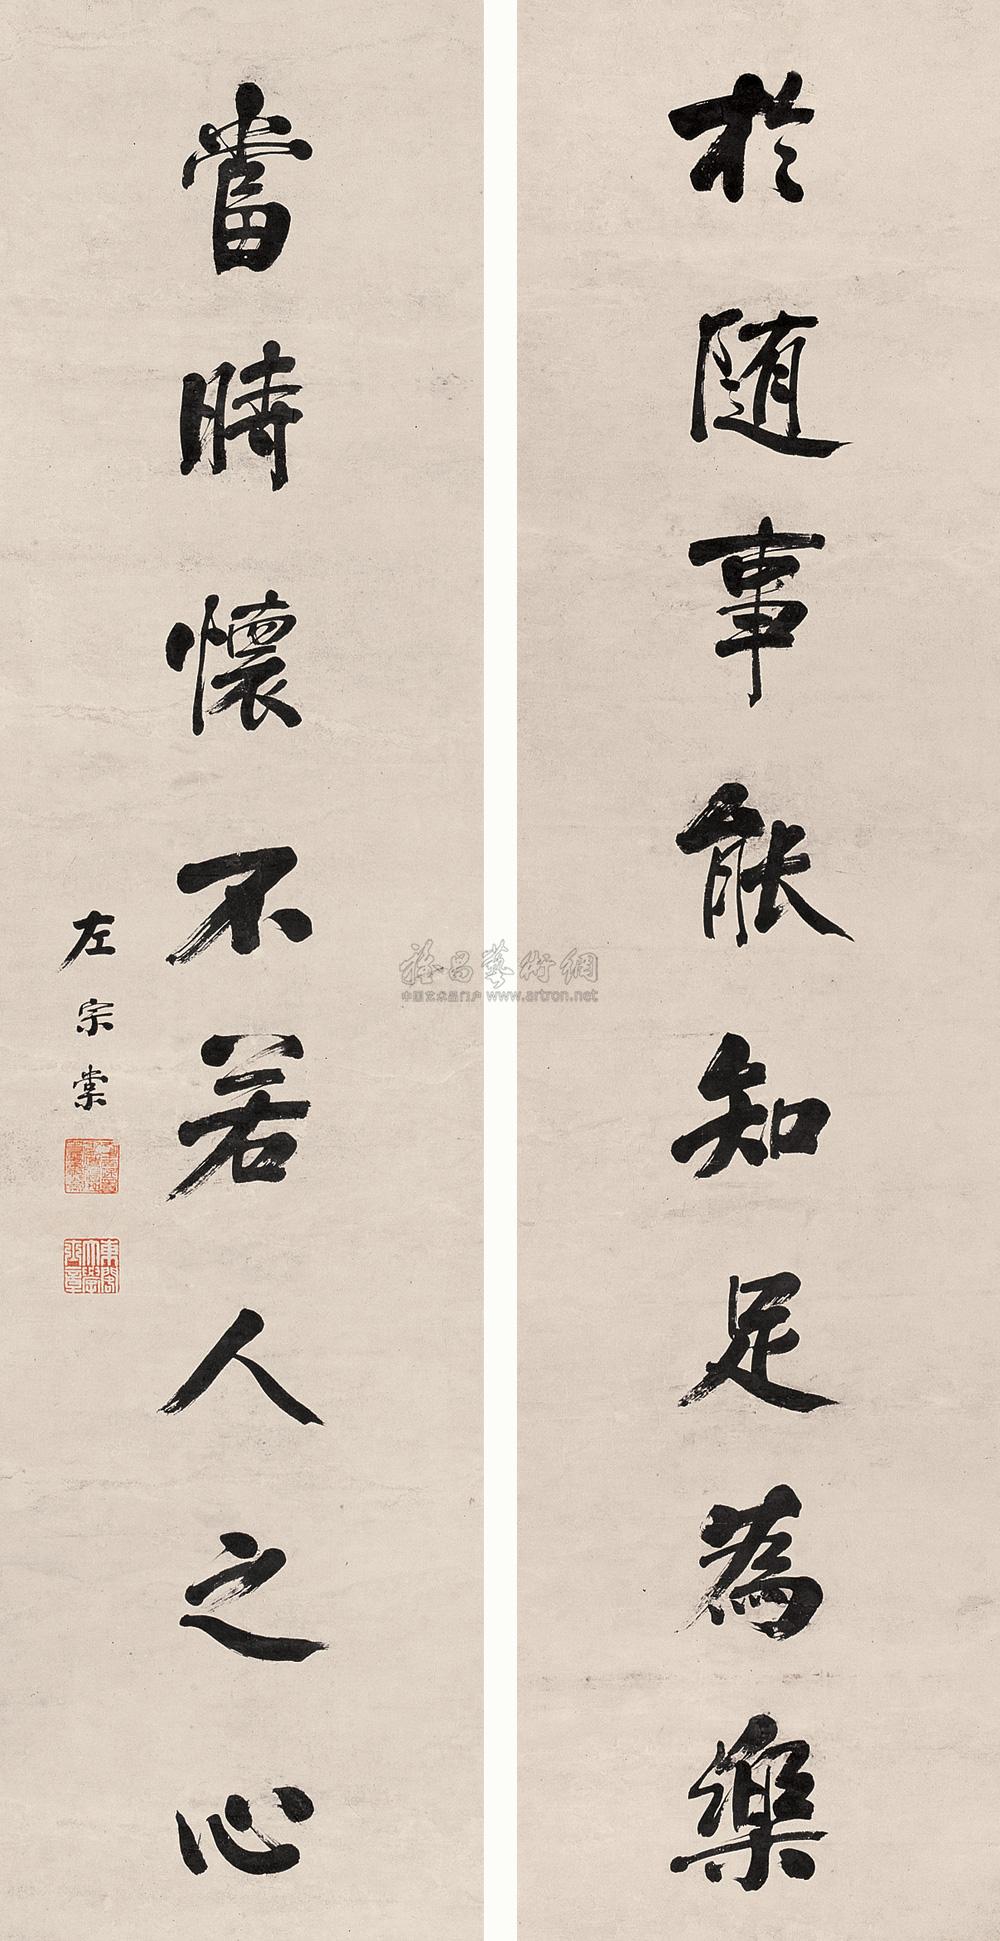 於隨事能知足為樂
當時懷不若人之心
左宗棠
東閣大學士章
雅昌藝術網
中国艺术品门户 www.artron.net